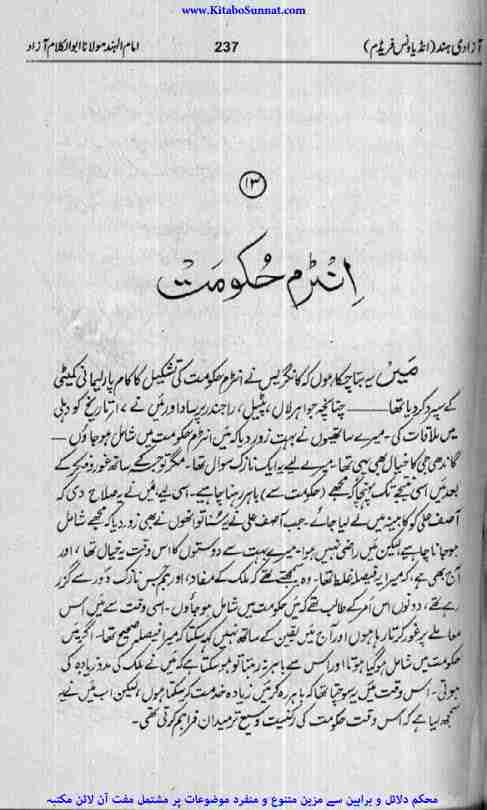 www.KitaboSunnat.com
آزادی ہند (انڈیا ونس فریڈم) 237 امام الہند مولانا ابوالکلام آزاد
۱۳
اِنٹرم حُکومَت
مَیں یہ بتا چکا ہوں کہ کانگریس نے انٹرم حکومت کی تشکیل کا کام پارلیمانی کمیٹی
کے سپرد کر دیا تھا —— چنانچہ جواہر لال، پٹیل، راجندر پرساد اور مَیں نے ۱۷ تاریخ کو دہلی
میں ملاقات کی۔ میرے ساتھیوں نے بہت زور دیا کہ مَیں انٹرم حکومت میں شامل ہو جاؤں —
گاندھی جی کا خیال بھی یہی تھا۔ میرے لیے یہ ایک نازک سوال تھا۔ مگر توجہ کے ساتھ غور و فکر کے
بعد مَیں اسی نتیجے تک پہنچا کہ مجھے (حکومت سے) باہر رہنا چاہیے۔ اسی لیے مَیں نے یہ صلاح دی کہ
آصف علی کو کابینہ میں لے لیا جائے۔ جب آصف علی نے یہ سُنا تو انھوں نے بھی زور دیا کہ مجھے شامل
ہو جانا چاہیے لیکن مَیں راضی نہیں ہوا۔ میرے بہت سے دوستوں کا اس وقت یہ خیال تھا، اور
آج بھی ہے، کہ میرا یہ فیصلہ غلط تھا۔ وہ یہ سمجھتے تھے کہ ملک کے مفاد، اور ہم جس نازک دَور سے گزر
رہے تھے، دونوں اس امر کے طالب تھے کہ مَیں حکومت میں شامل ہو جاؤں۔ اسی وقت سے مَیں اس
معاملے پر غور کرتا رہا ہوں اور آج مَیں یقین کے ساتھ نہیں کہہ سکتا کہ میرا فیصلہ صحیح تھا۔ اگر مَیں
حکومت میں شامل ہو گیا ہوتا اور اس سے باہر نہ رہتا تو ہو سکتا ہے کہ مَیں نے ملک کی مدد زیادہ کی
ہوتی۔ اس وقت مَیں یہ سوچتا تھا کہ باہر رہ کر مَیں زیادہ خدمت کر سکتا ہوں، لیکن اب مَیں نے یہ
سمجھ لیا ہے کہ اس وقت حکومت کی رکنیت وسیع تر میدان فراہم کرتی تھی۔
محکم دلائل و براہین سے مزین متنوع و منفرد موضوعات پر مشتمل مفت آن لائن مکتبہ